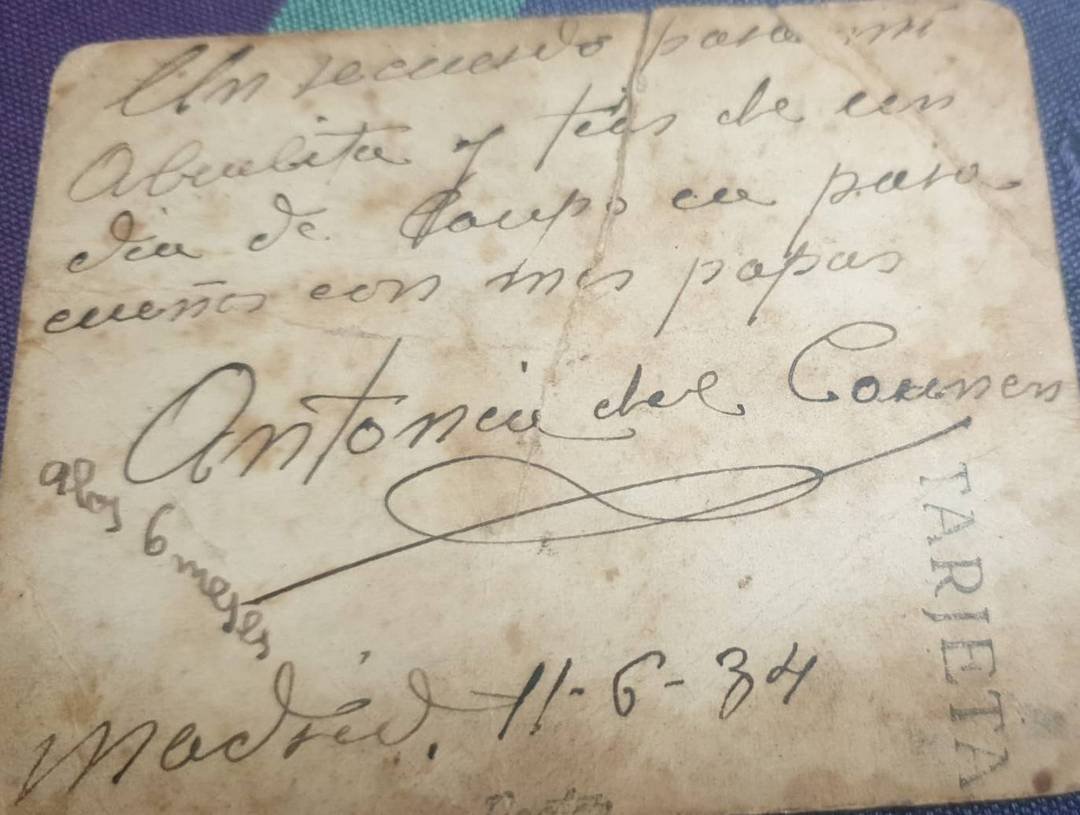 Un recuerdo para mi
Abuelita y tias de un
dia de Campo en para
cueños con mis papas
Antonia del Carmen
a los 6 meses
Madrid, 11-6-34
TARJETA